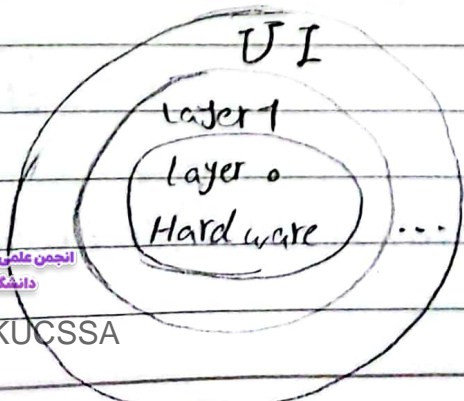 UI
Layer 1
layer 0
Hardware ...
انجمن علمی
دانشگ
KUCSSA